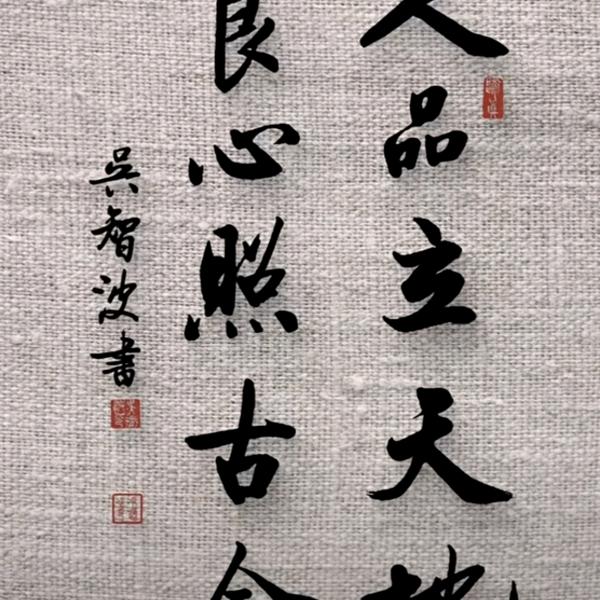 人品立天地
良心照古今
吳智波書